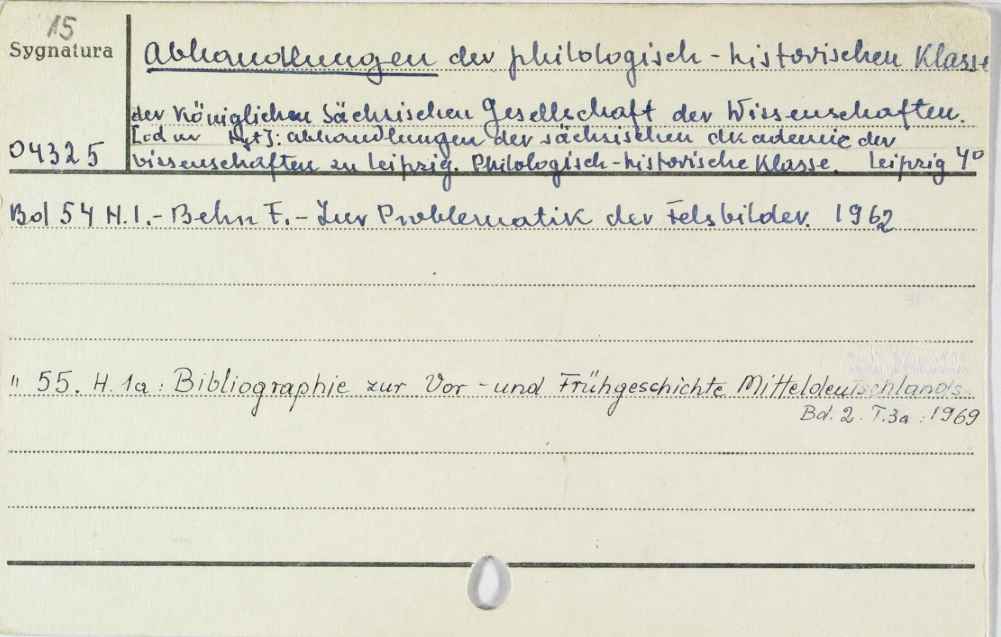 15
Sygnatura
04325
Abhandlungen der philologisch-historischen Klasse
der Königlichen Sächsischen Gesellschaft der Wissenschaften.
[od nr : Abhandlungen der sächsischen Akademie der
Wissenschaften zu Leipzig. Philologisch-historische Klasse. Leipzig 4°
Bd 54 H.1.-Behn F.-Zur Problematik der Felsbilder. 1962
" 55. H. 1a: Bibliographie zur Vor-und Frühgeschichte Mitteldeutschlands.
Bd. 2. T.3a: 1969